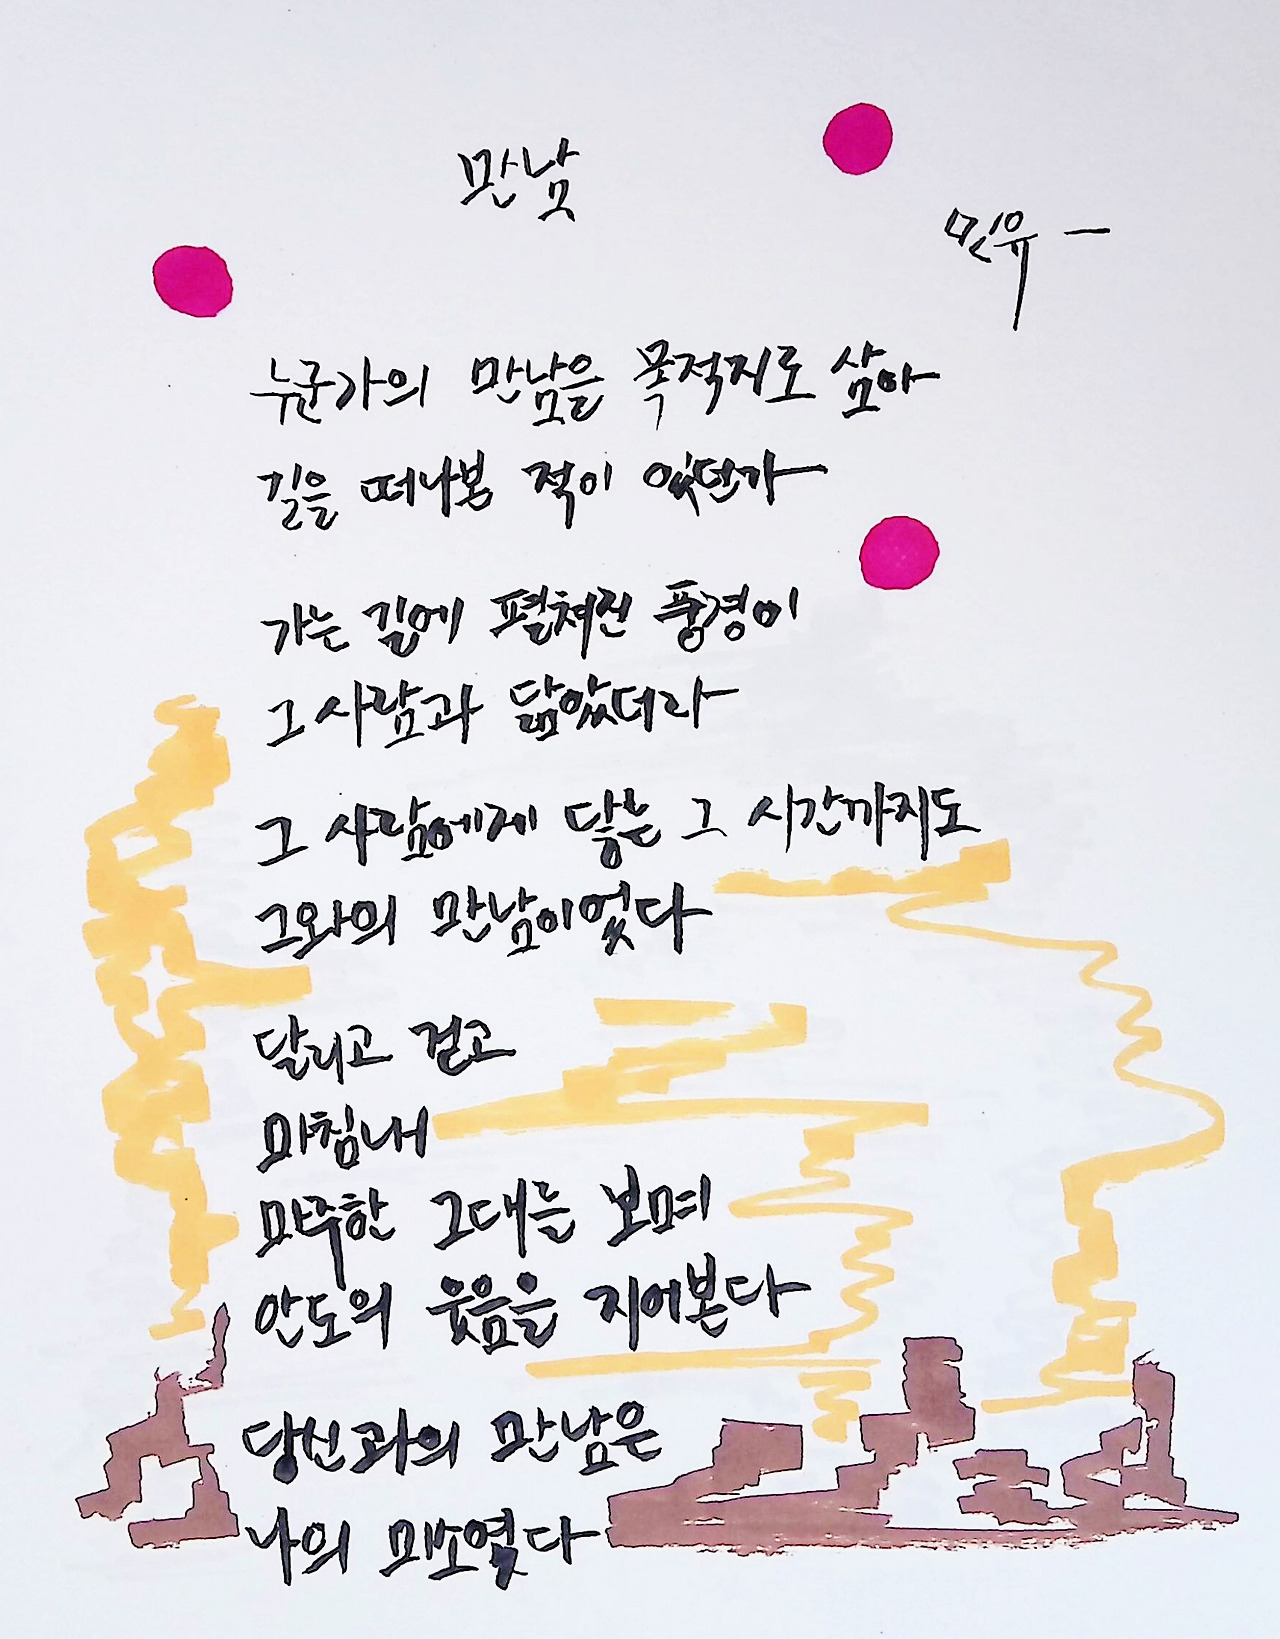 만남
민유 ㅡ
누군가의 만남을 목적지로 삼아
길을 떠나본 적이 있던가
가는 길에 펼쳐진 풍경이
그 사람과 닮았더라
그 사람에게 닿는 그 시간까지도
그와의 만남이었다
달리고 걷고
마침내
마주한 그대를 보며
안도의 웃음을 지어본다
당신과의 만남은
나의 미소였다